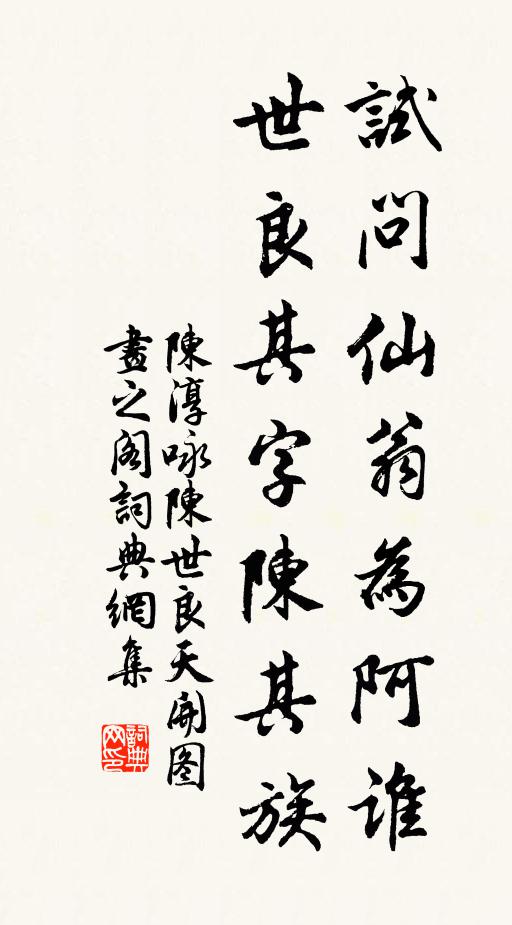 試問仙翁為阿誰
世良其字陳其族
陳淳咏陳世良天開图
畫之阁詞典網集
詞典网印